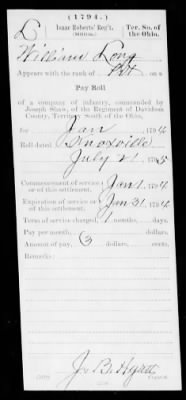 (1794.)
L Isaac Roberts' Reg't, Ter. So. of
(Militia.) the Ohio.
William Long
Appears with the rank of Pvt. on a
Pay Roll
of a company of infantry, commanded by
Joseph Shaw, of the Regiment of Davidson
County, Territory South of the Ohio,
for Jan, 1794
Roll dated Knoxville
July 21, 1795
Commencement of service or of this settlement. Jan 1, 1794
Expiration of service or of this settlement. Jan 31, 1794
Term of service charged, 1 months, days.
Pay per month, dollars, cents.
Amount of pay, 3 dollars, cents.
Remarks:
J. B. Hyatt
Copyist.